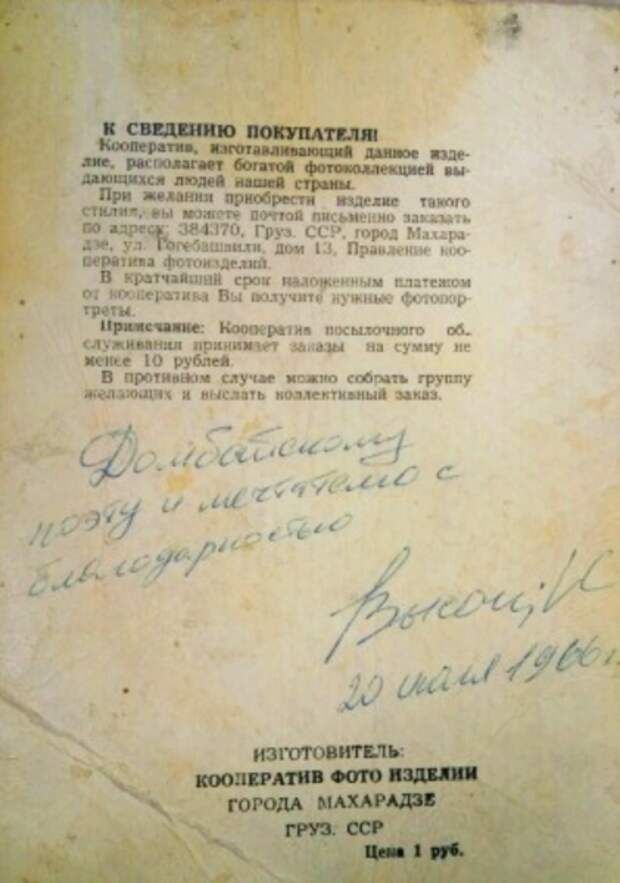 К СВЕДЕНИЮ ПОКУПАТЕЛЯ!
Кооператив, изготавливающий данное изде-
лие, располагает богатой фотоколлекцией вы-
дающихся людей нашей страны.
При желании приобрести изделие такого
стилия, вы можете почтой письменно заказать
по адресу: 384370, Груз. ССР, город Махара-
дзе, ул. Гогебашвили, дом 13, Правление коо-
ператива фотоизделий.
В кратчайший срок наложенным платежом
от кооператива Вы получите нужные фотопор-
треты.
Примечание: Кооператив посылочного об-
служивания принимает заказы на сумму не
менее 10 рублей.
В противном случае можно собрать группу
желающих и выслать коллективный заказ.
Домбайскому
поэту и мечтателю с
благодарностью
20 июля 1966 г.
ИЗГОТОВИТЕЛЬ:
КООПЕРАТИВ ФОТО ИЗДЕЛИИ
ГОРОДА МАХАРАДЗЕ
ГРУЗ. ССР
Цена 1 руб.